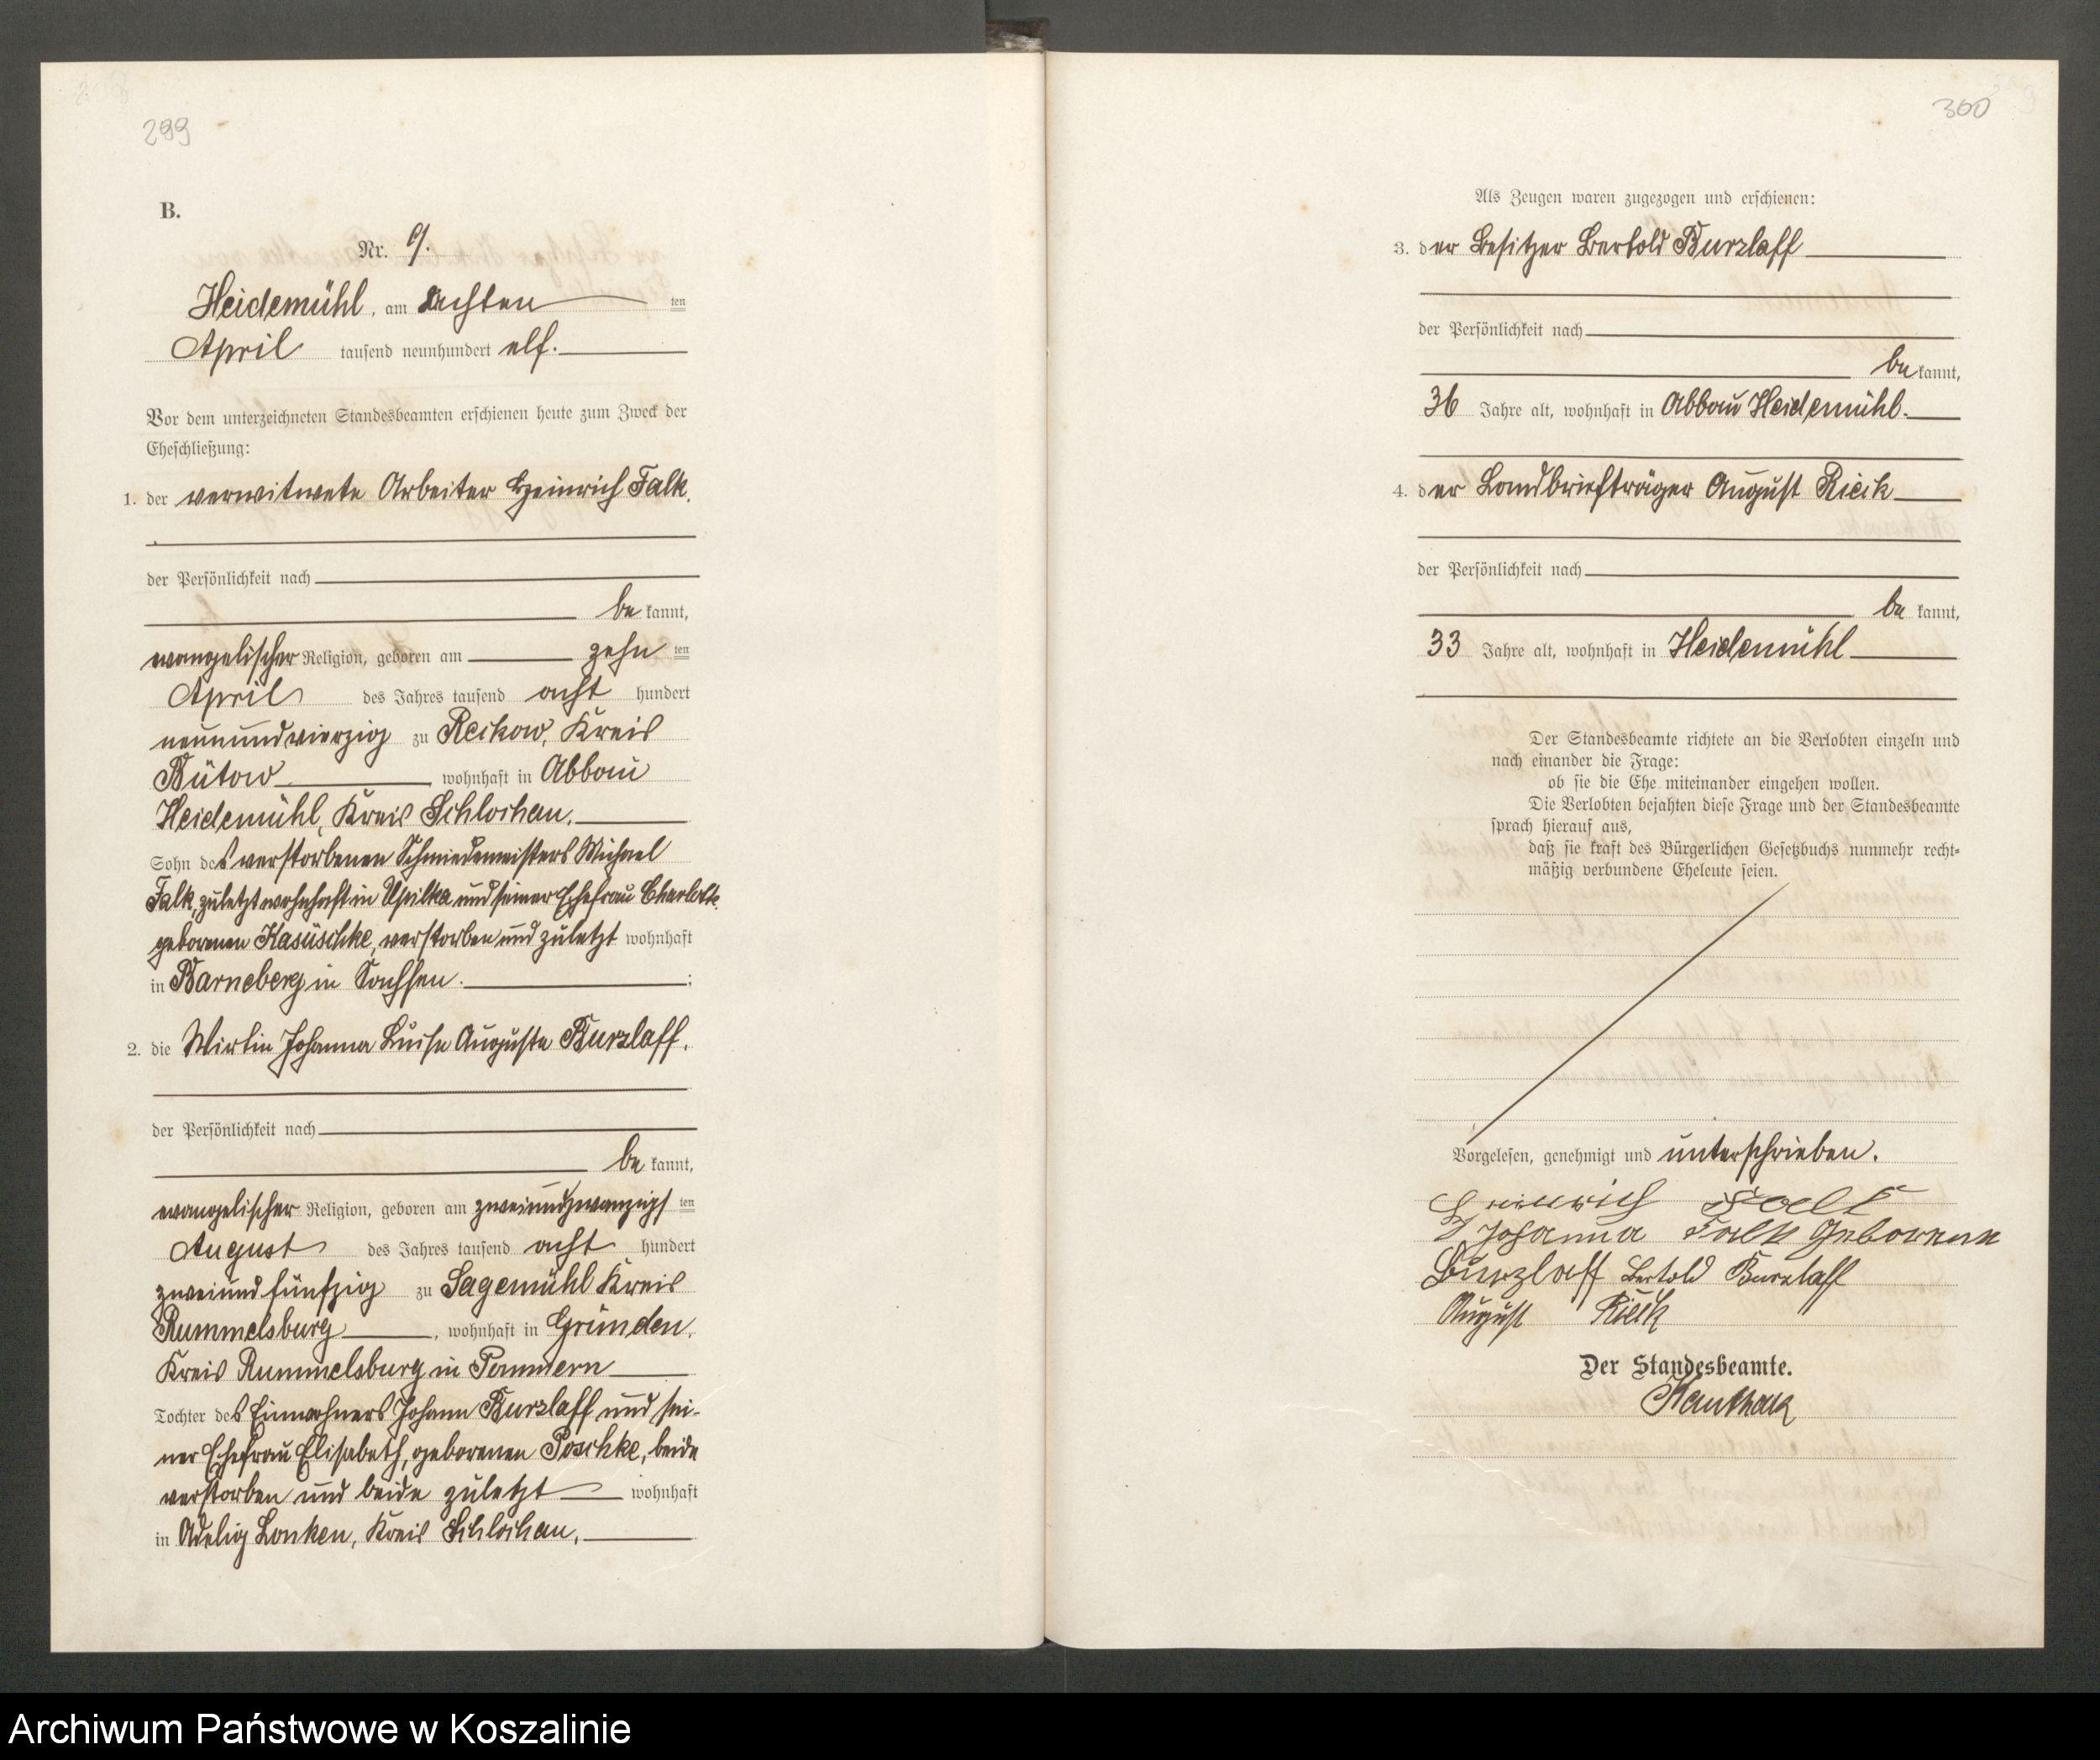 299
B.
Nr. 9.
Heidemühl, am achten ten
April tausend neunhundert elf.
Vor dem unterzeichneten Standesbeamten erschienen heute zum Zweck der
Eheschließung:
1. der verwitwete Arbeiter Heinrich Falk,
der Persönlichkeit nach
be kannt,
evangelischer Religion, geboren am zehn ten
April des Jahres tausend acht hundert
neunundvierzig zu Reckow, Kreis
Bütow wohnhaft in Abbau
Heidemühl, Kreis Schlochau.
Sohn des verstorbenen Schmiedemeisters Michael
Falk, zuletzt wohnhaft in Upilka und seiner Ehefrau Charlotte
geborenen Kasüschke, verstorben und zuletzt wohnhaft
in Barneberg in Sachsen. ;
2. die Wirtin Johanna Luise Auguste Burzlaff,
der Persönlichkeit nach
be kannt,
evangelischer Religion, geboren am zweiundzwanzigs ten
August des Jahres tausend acht hundert
zweiundfünfzig zu Sagemühl Kreis
Rummelsburg, wohnhaft in Gründen,
Kreis Rummelsburg in Pommern
Tochter des Einwohners Johann Burzlaff und sei-
ner Ehefrau Elisabeth, geborenen Poschke, beide
verstorben und beide zuletzt wohnhaft
in Adelig Lonken, Kreis Schlochau.
300
Als Zeugen waren zugezogen und erschienen:
3. der Besitzer Bertold Burzlaff
der Persönlichkeit nach
be kannt,
36 Jahre alt, wohnhaft in Abbau Heidemühl.
4. der Landbriefträger August Rieck
der Persönlichkeit nach
be kannt,
33 Jahre alt, wohnhaft in Heidemühl
Der Standesbeamte richtete an die Verlobten einzeln und
nach einander die Frage:
ob sie die Ehe miteinander eingehen wollen.
Die Verlobten bejahten diese Frage und der Standesbeamte
sprach hierauf aus,
daß sie kraft des Bürgerlichen Gesetzbuchs nunmehr recht-
mäßig verbundene Eheleute seien.
Vorgelesen, genehmigt und unterschrieben.
Heinrich Falk
Johanna Falk Geborene
Burzlaff Bertold Burzlaff
August Rieck
Der Standesbeamte.
Archiwum Państwowe w Koszalinie